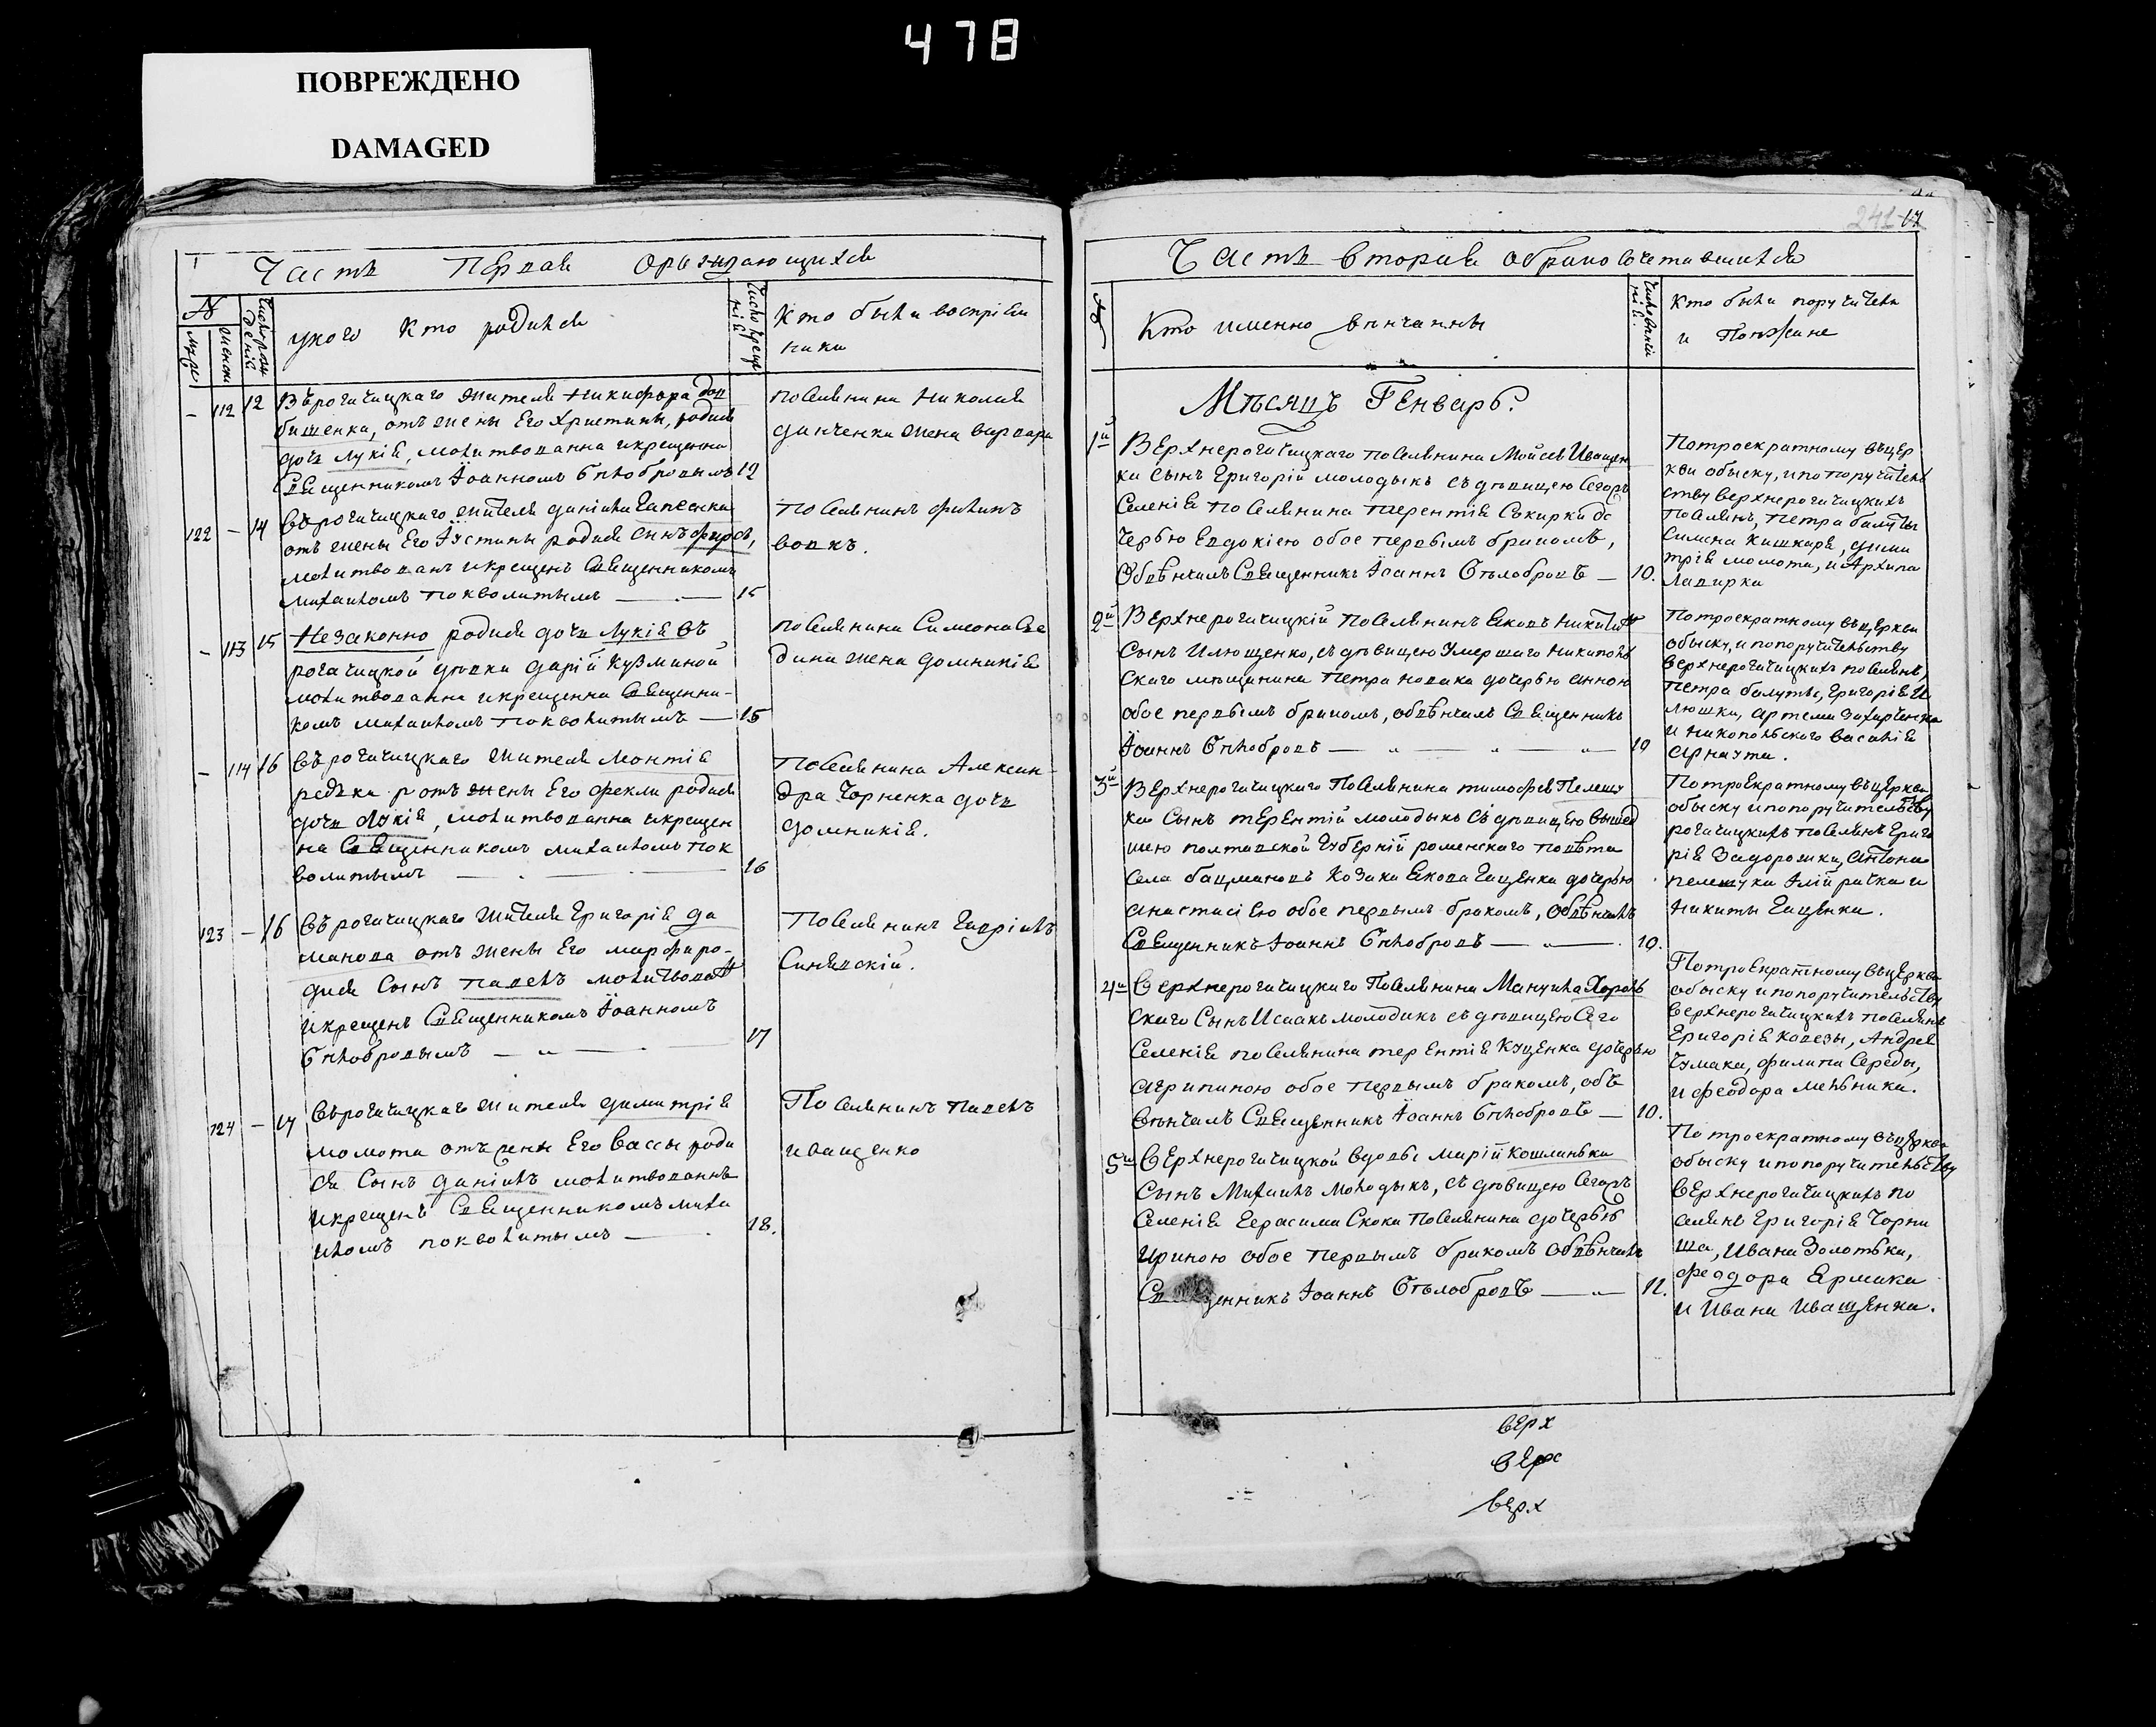 478
ПОВРЕЖДЕНО
DAMAGED
Часть Первая о раждающихся
№
мужс
женск
Число рож
денія
укого Кто родился
Число крещ
нія
Кто были воспріем
ники
– 112 12 Вѣрогачицкаго жителя Никифора Доп
бишенка, отъ жены Его Христины, родися
дочь Лукія, молитвованна икрещенна
Священникомъ Іоанномъ Бѣлобровымъ 12
поселянина Николая
данченка жена варвара
122 – 14 Вѣрогачицкаго жителя даніила Чапсенка
отъ жены Его Іустины родися сынъ Фирсъ,
молитвованъ икрещенъ Священникомъ
михаиломъ покволитымъ 15
Поселянинъ филипъ
вовкъ.
– 113 15 Незаконно родися дочь Лукія Въ
рогачицкой дѣвки дарій Кузминой
молитвованна икрещенна Священни-
комъ михаиломъ покволитымъ 15
поселянина Симеона Све
дина жена домникія
– 114 16 Вѣрогачицкаго жителя Монтія
редька отъ жены Его феклы родися
дочь Лукія, молитвованна икрещен
на Священникомъ михаиломъ пок
волитымъ 16
Поселянина Алексан-
дра Чорненка дочь
домникія.
123 – 16 Вѣрогачицкаго жителя Григорія да
манова отъ жены Его марфы ро-
дися Сынъ павелъ молитвованъ
икрещенъ Священникомъ Іоанномъ
Бѣлобровымъ 17
Поселянинъ Гавріилъ
Синявскій.
124 – 17 Вѣрогачицкаго жителя димитрія
момота отъ жены Его Вассы роди
ся Сынъ даніилъ молитвованнъ
икрещенъ Священникомъ миха
иломъ покволитымъ 18.
Поселянинъ павелъ
иващенко
241 17
Часть вторая обракосочетавшихся
№
Кто именно вѣнчанны
Число вѣнчанія
Кто были поручители
и Поѣзжане
Мѣсяцъ Генварь.
1й Верхнерогачицкаго поселянина Мойсея Иващен
ка сынъ Григорій молодыкъ съ дѣвицею Сегожъ
Селенія поселянина терентія Сокирки до
черью Евдокіею обое первымъ бракомъ,
Обвѣнчалъ Священникъ Іоаннъ Бѣлобровъ 10.
Потроекратному въцер
кви обыску, ипопоручитель
ству верхнерогачицкихъ
поселянъ, петра балуты
Симона Кишкара, дими
трія момота, и Архипа
Лавирка
2й Верхнерогачицкій поселянинъ Яковъ Никитинъ
сынъ Илющенко, съ дѣвицею Умершаго Никополь
скаго мѣщанина петра новака дочерью анною
обое первымъ бракомъ, обвѣнчалъ Священникъ
Іоаннъ Бѣлобровъ 10
Потроекратному въцеркви
обыску, ипопоручительству
верхнерогачицкихъ поселянъ,
петра балуты, григорія И
люшки, артема Захарченка
и никопольского василія
арнаута.
3й Верхнерогачицкаго Поселянина тимофея Пелешу
ка Сынъ терентій молодыкъ съ дѣвицею вышед
шею полтавской Губерній роменскаго повѣта
села бацмановъ козака Якова Гащенка дочерью
анастасіею обое первымъ бракомъ, обвѣнчалъ
Священникъ Іоаннъ Бѣлобровъ 10.
Потроекратному въцеркви
обыску ипопоручительству
рогачицкихъ поселянъ Григо
рія Задорожки, антона
пелешука и
никиты Гащенка.
4й Верхнерогачицкаго Поселянина Мануила Хороль
скаго Сынъ Исаакъ молодикъ съ дѣвицею Сего
Селенія поселянина терентія Куценка дочерью
агрипиною обое первымъ бракомъ, объ
вѣнчалъ Священникъ Іоаннъ Бѣлобровъ 10.
Потроекратному въцеркви
обыску ипопоручительству
верхнерогачицкихъ поселянъ
Григорія Ковезы, Андрея
Чумака, филипа Середы,
и феодора мельника.
5й Верхнерогачицкой вдовы Марій Кошманьки
сынъ Михаилъ молодыкъ, съ дѣвицею Сегожъ
Селенія Герасима Скока поселянина дочерью
ириною обое первымъ бракомъ обвѣнчалъ
Священникъ Іоаннъ Бѣлобровъ 12.
Потроекратному въцеркви
обыску ипопоручительству
верхнерогачицкихъ по
селянъ Григорія Чорни
ша, Ивана Золотька,
феодора Ермака
и Ивана Иващенка.
верх
верх
верх